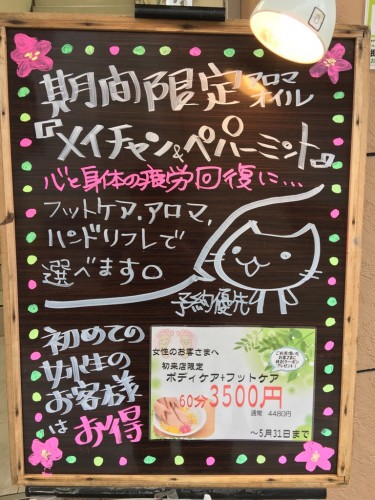 期間限定アロマオイル
『メイチャン&ペパーミント』
心と身体の疲労回復に…
フットケア、アロマ、
ハンドリフレで
選べます。
予約優先
初めての
女性の
お客様
はお得
女性のお客さまへ
初来店限定
ボディケア+フットケア
60分3500円
通常 4480円
~5月31日まで